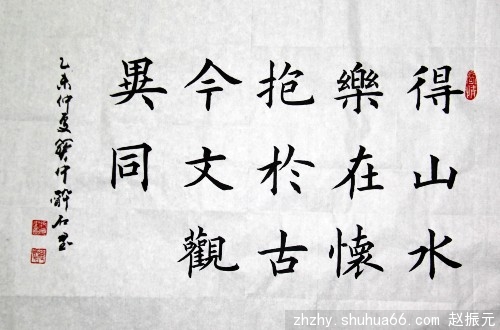 得山水
樂在懷
抱於古
今文觀
異同
乙未仲夏
zhzhy.shuhua66.com 赵振元